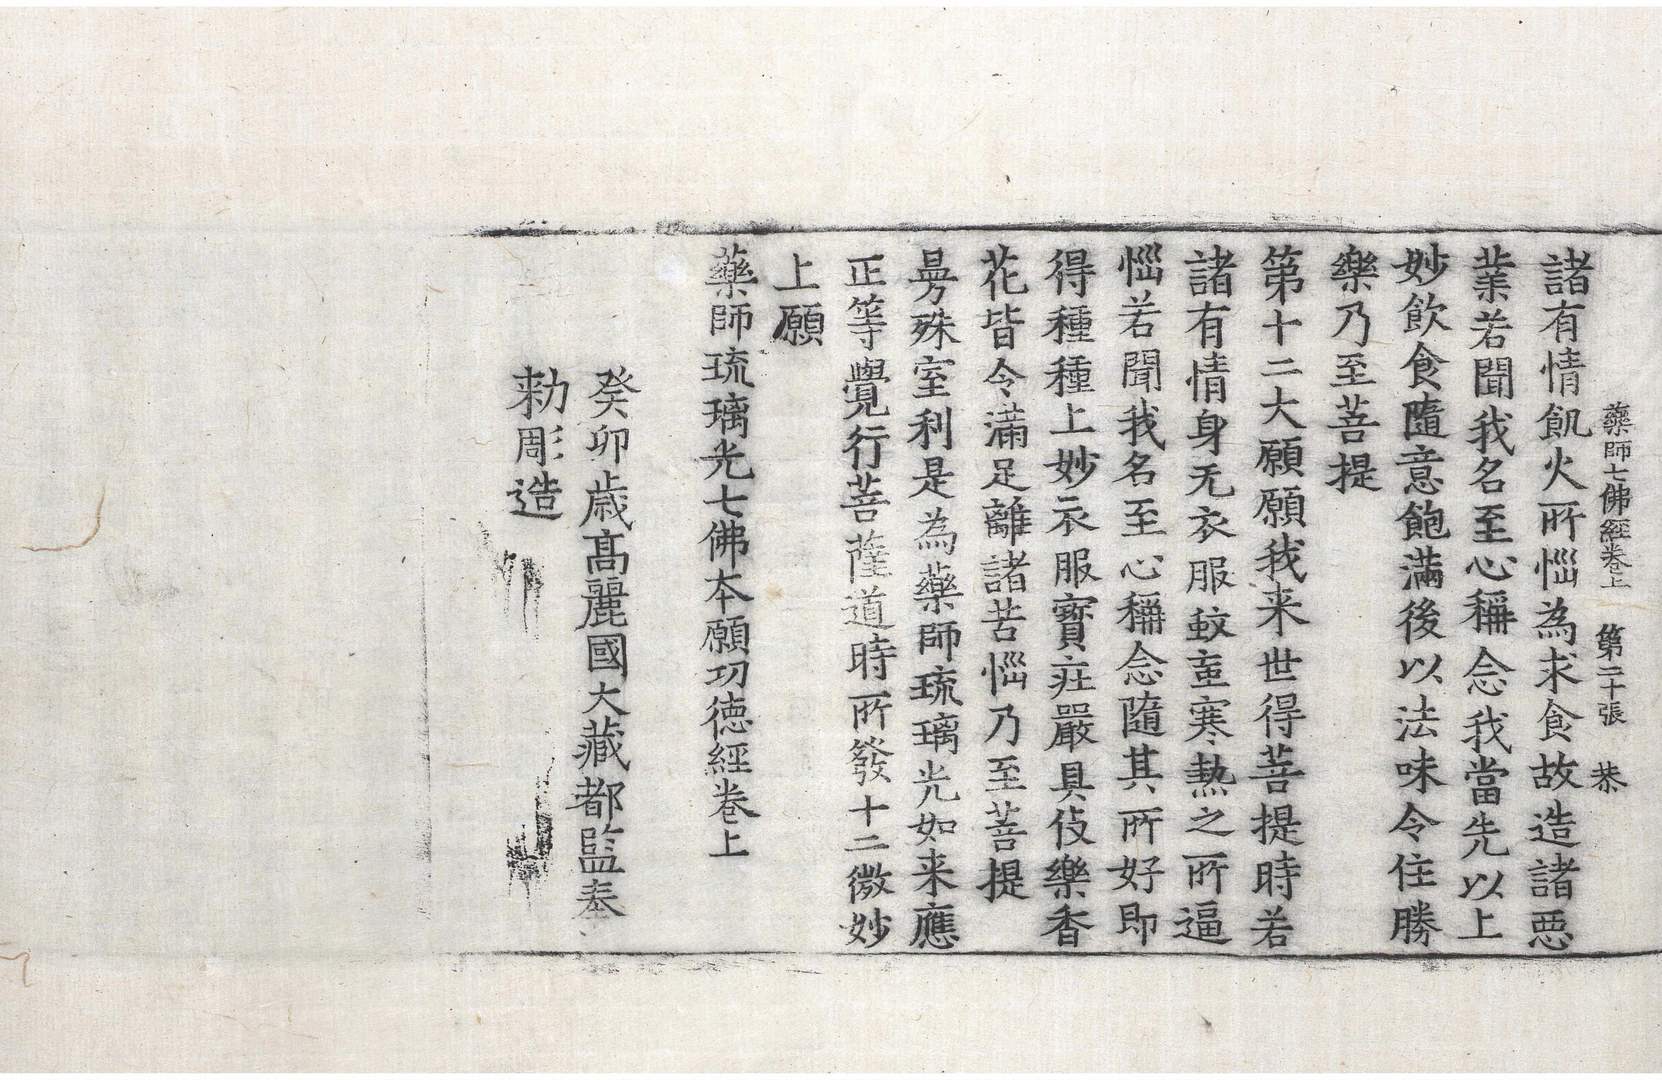 藥師七佛經卷上 第二十張 恭
諸有情飢火所惱為求食故造諸惡
業若聞我名至心稱念我當先以上
妙飲食隨意飽滿後以法味令住勝
樂乃至菩提
第十二大願願我来世得菩提時若
諸有情身无衣服蚊䖟寒熱之所逼
惱若聞我名至心稱念隨其所好即
得種種上妙衣服寶莊嚴具伎樂香
花皆令滿足離諸苦惱乃至菩提
曼殊室利是為藥師琉璃光如来應
正等覺行菩薩道時所發十二微妙
上願
藥師琉璃光七佛本願功德經卷上
癸卯歲高麗國大藏都監奉
勅彫造